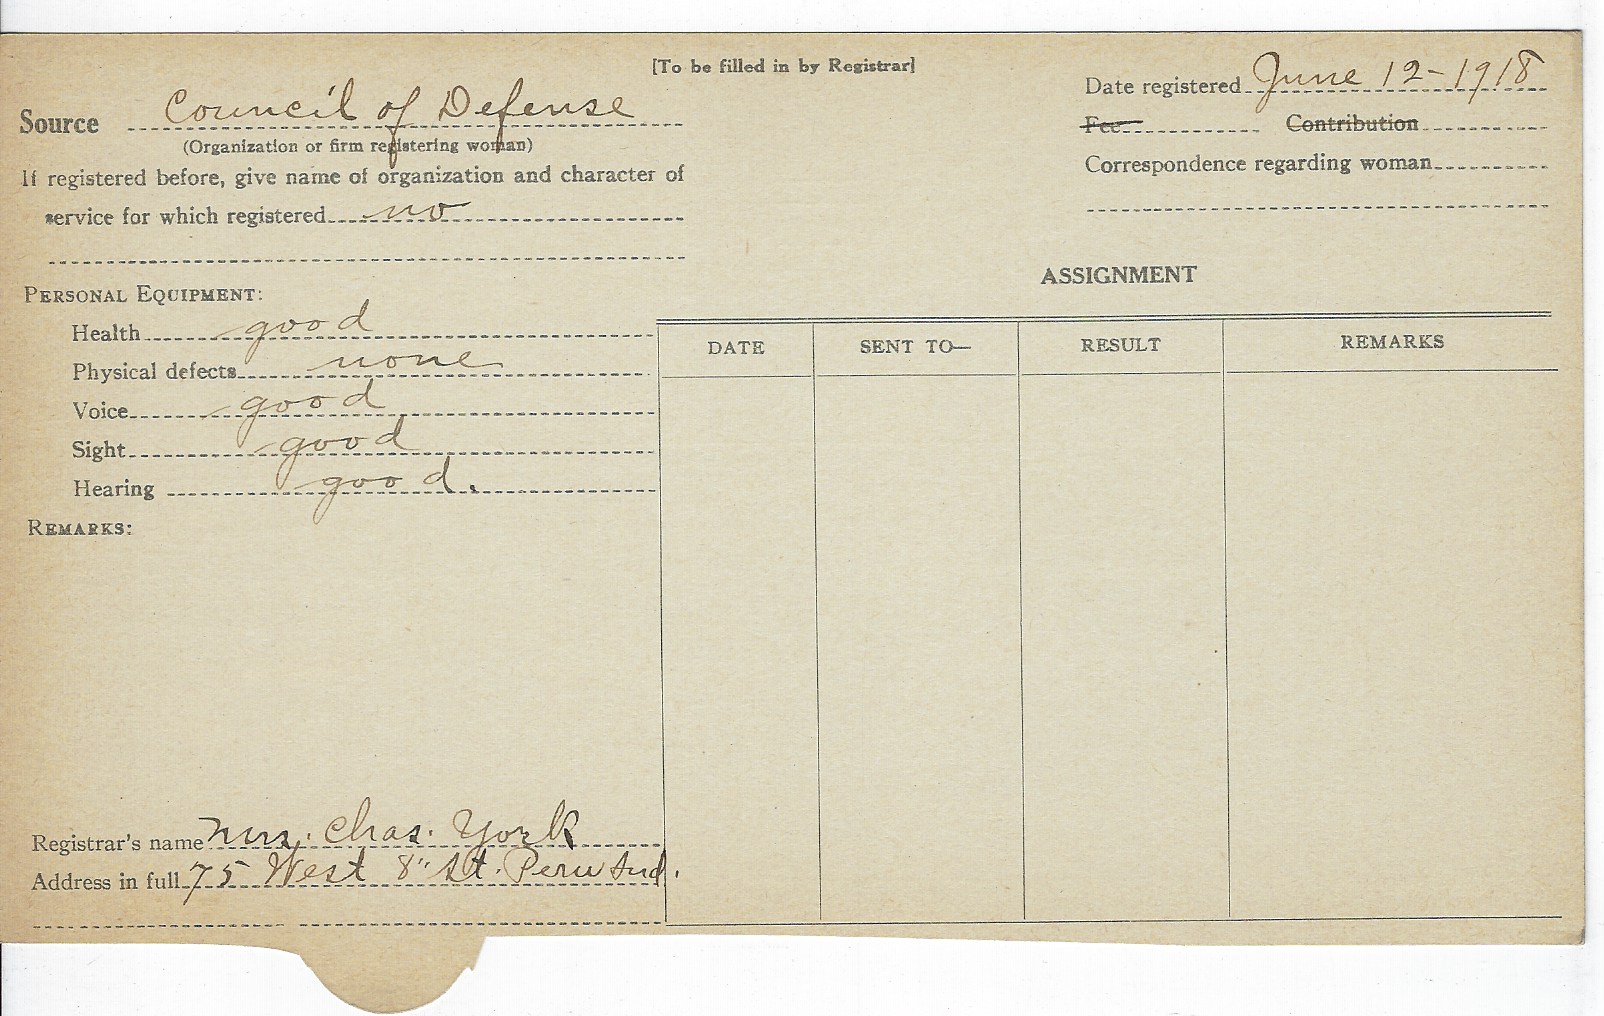 [To be filled in by Registrar]
Source Council of Defense
(Organization or firm registering woman)
If registered before, give name of organization and character of
service for which registered no
Date registered June 12-1918
Fee Contribution
Correspondence regarding woman
PERSONAL EQUIPMENT:
Health good
Physical defects none
Voice good
Sight good
Hearing good.
REMARKS:
ASSIGNMENT
DATE SENT TO— RESULT REMARKS
Registrar's name Mrs. Chas. York
Address in full 75 West 8" St. Peru Ind.